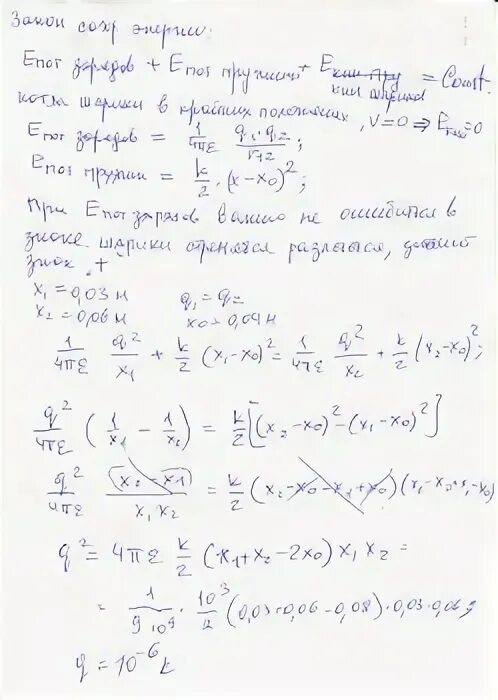 Закон сохр энергии:
Eпот зарядов + Eпот пружины + Eкин шарика = Const.
когда шарики в крайних положениях, V=0 ⇒ Eкин=0
Eпот зарядов = 1/4πε q₁·q₂/r₁₂ ;
Eпот пружин = k/2 · (x-x₀)² ;
При Eпот зарядов важно не ошибиться в
знаке шарики
знак +
x₁ = 0,03 м q₁ = q₂
x₂ = 0,06 м x₀ = 0,04 м
1/4πε q²/x₁ + k/2 (x₁-x₀)² = 1/4πε q²/x₂ + k/2 (x₂-x₀)² ;
q²/4πε (1/x₁ - 1/x₂) = k/2 [(x₂-x₀)² - (x₁-x₀)²]
q²/4πε (x₂-x₁)/x₁x₂ = k/2 (x₂-x₀-x₁+x₀)
q² = 4πε k/2 (x₁+x₂-2x₀) x₁x₂ =
= 1/9·10⁹ · 10³/2 (0,03+0,06-0,08)·0,03·0,06 ;
q = 10⁻⁶ k